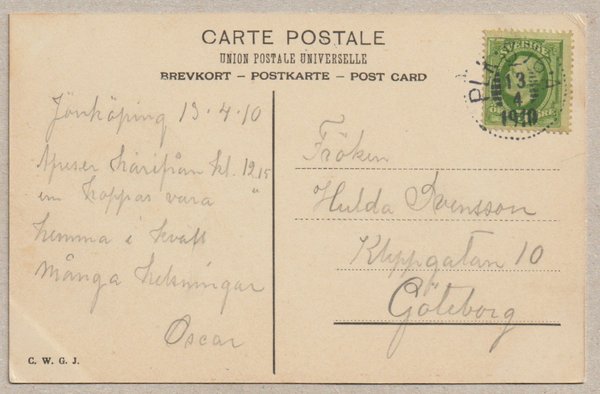 CARTE POSTALE
UNION POSTALE UNIVERSELLE
BREVKORT – POSTKARTE – POST CARD
SVERIGE
13
4
1910
Jönköping 13-4-10
härifrån kl. 12,15
hoppas vara
hemma i kväll
Många helsningar
Oscar
Fröken
Hulda Svensson
Klippgatan 10
Göteborg
C. W. G. J.